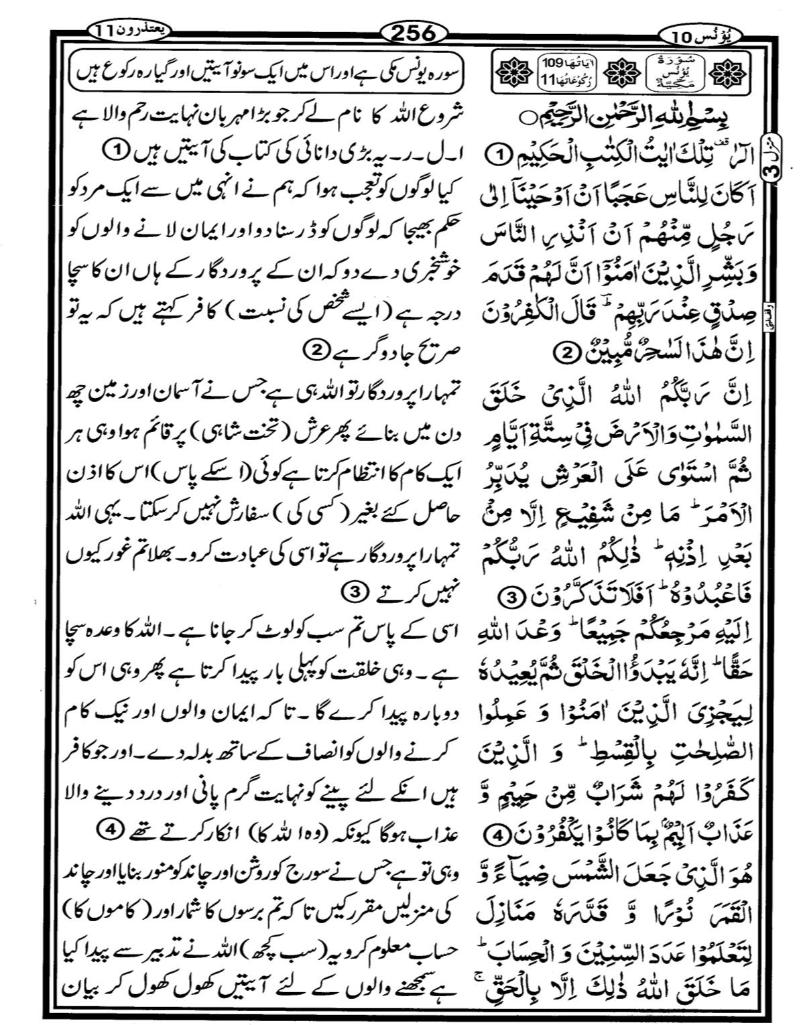 يُوْنُس 10
256
يعتذرون 11
سُوْرَةُ يُوْنُسَ مَكِّيَّةٌ
اٰيَاتُهَا 109
رُكُوْعَاتُهَا 11
بِسْمِ اللّٰهِ الرَّحْمٰنِ الرَّحِيْمِ
الٓرٰ ۚ تِلْكَ اٰيٰتُ الْكِتٰبِ الْحَكِيْمِ ①
اَكَانَ لِلنَّاسِ عَجَبًا اَنْ اَوْحَيْنَآ اِلٰى
رَجُلٍ مِّنْهُمْ اَنْ اَنْذِرِ النَّاسَ
وَبَشِّرِ الَّذِيْنَ اٰمَنُوْٓا اَنَّ لَهُمْ قَدَمَ
صِدْقٍ عِنْدَ رَبِّهِمْ ؔ قَالَ الْكٰفِرُوْنَ
اِنَّ هٰذَا لَسٰحِرٌ مُّبِيْنٌ ②
اِنَّ رَبَّكُمُ اللّٰهُ الَّذِيْ خَلَقَ
السَّمٰوٰتِ وَالْاَرْضَ فِيْ سِتَّةِ اَيَّامٍ
ثُمَّ اسْتَوٰى عَلَى الْعَرْشِ يُدَبِّرُ
الْاَمْرَ ؕ مَا مِنْ شَفِيْعٍ اِلَّا مِنْۢ
بَعْدِ اِذْنِهٖ ؕ ذٰلِكُمُ اللّٰهُ رَبُّكُمْ
فَاعْبُدُوْهُ ؕ اَفَلَا تَذَكَّرُوْنَ ③
اِلَيْهِ مَرْجِعُكُمْ جَمِيْعًا ؕ وَعْدَ اللّٰهِ
حَقًّا ؕ اِنَّهٗ يَبْدَؤُا الْخَلْقَ ثُمَّ يُعِيْدُهٗ
لِيَجْزِيَ الَّذِيْنَ اٰمَنُوْا وَ عَمِلُوا
الصّٰلِحٰتِ بِالْقِسْطِ ؕ وَ الَّذِيْنَ
كَفَرُوْا لَهُمْ شَرَابٌ مِّنْ حَمِيْمٍ وَّ
عَذَابٌ اَلِيْمٌۢ بِمَا كَانُوْا يَكْفُرُوْنَ ④
هُوَ الَّذِيْ جَعَلَ الشَّمْسَ ضِيَآءً وَّ
الْقَمَرَ نُوْرًا وَّ قَدَّرَهٗ مَنَازِلَ
لِتَعْلَمُوْا عَدَدَ السِّنِيْنَ وَ الْحِسَابَ ؕ
مَا خَلَقَ اللّٰهُ ذٰلِكَ اِلَّا بِالْحَقِّ ۚ
سورہ یونس مکی ہے اور اس میں ایک سو نو آیتیں اور گیارہ رکوع ہیں
شروع اللہ کا نام لے کر جو بڑا مہربان نہایت رحم والا ہے
ا۔ل۔ر۔ یہ بڑی دانائی کی کتاب کی آیتیں ہیں ①
کیا لوگوں کو تعجب ہوا کہ ہم نے انہی میں سے ایک مرد کو
حکم بھیجا کہ لوگوں کو ڈر سنا دو اور ایمان لانے والوں کو
خوشخبری دے دو کہ ان کے پروردگار کے ہاں ان کا سچا
درجہ ہے (ایسے شخص کی نسبت) کافر کہتے ہیں کہ یہ تو
صریح جادوگر ہے ②
تمہارا پروردگار تو اللہ ہی ہے جس نے آسمان اور زمین چھ
دن میں بنائے پھر عرش (تخت شاہی) پر قائم ہوا وہی ہر
ایک کام کا انتظام کرتا ہے کوئی (اسکے پاس) اس کا اذن
حاصل کئے بغیر (کسی کی) سفارش نہیں کر سکتا۔ یہی اللہ
تمہارا پروردگار ہے تو اسی کی عبادت کرو۔ بھلا تم غور کیوں
نہیں کرتے ③
اسی کے پاس تم سب کو لوٹ کر جانا ہے۔ اللہ کا وعدہ سچا
ہے۔ وہی خلقت کو پہلی بار پیدا کرتا ہے پھر وہی اس کو
دوبارہ پیدا کرے گا۔ تاکہ ایمان والوں اور نیک کام
کرنے والوں کو انصاف کے ساتھ بدلہ دے۔ اور جو کافر
ہیں انکے لئے پینے کو نہایت گرم پانی اور درد دینے والا
عذاب ہوگا کیونکہ (وہ اللہ کا) انکار کرتے تھے ④
وہی تو ہے جس نے سورج کو روشن اور چاند کو منور بنایا اور چاند
کی منزلیں مقرر کیں تاکہ تم برسوں کا شمار اور (کاموں کا)
حساب معلوم کرو یہ (سب کچھ) اللہ نے تدبیر سے پیدا کیا
ہے سمجھنے والوں کے لئے آیتیں کھول کھول کر بیان
منزل 3